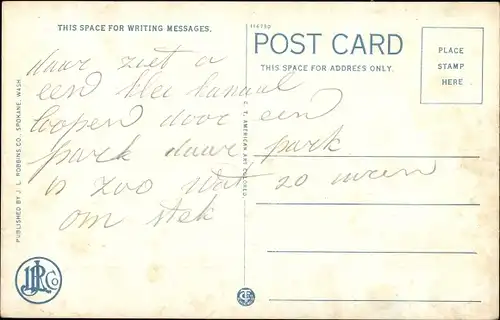 THIS SPACE FOR WRITING MESSAGES.
114750
POST CARD
THIS SPACE FOR ADDRESS ONLY.
PLACE
STAMP
HERE
daar ziet a
een klei kanaal
loopen door een
park daar park
is zoo wat 20 uuren
om stek
PUBLISHED BY J. L. ROBBINS CO., SPOKANE, WASH.
C. T. AMERICAN ART COLORED
JLR Co